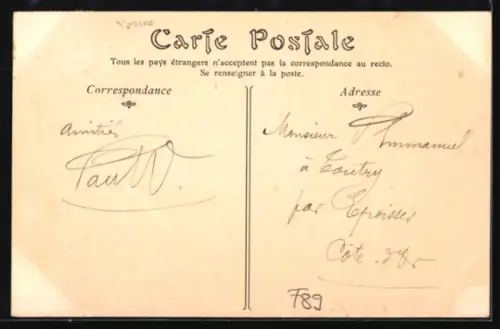 Yonne
Carte Postale
Tous les pays étrangers n'acceptent pas la correspondance au recto.
Se renseigner à la poste.
Correspondance
Adresse
Amitiés
Paul
Monsieur Emmanuel
à Toutry
par Epoisses
Côte-d'Or
F89